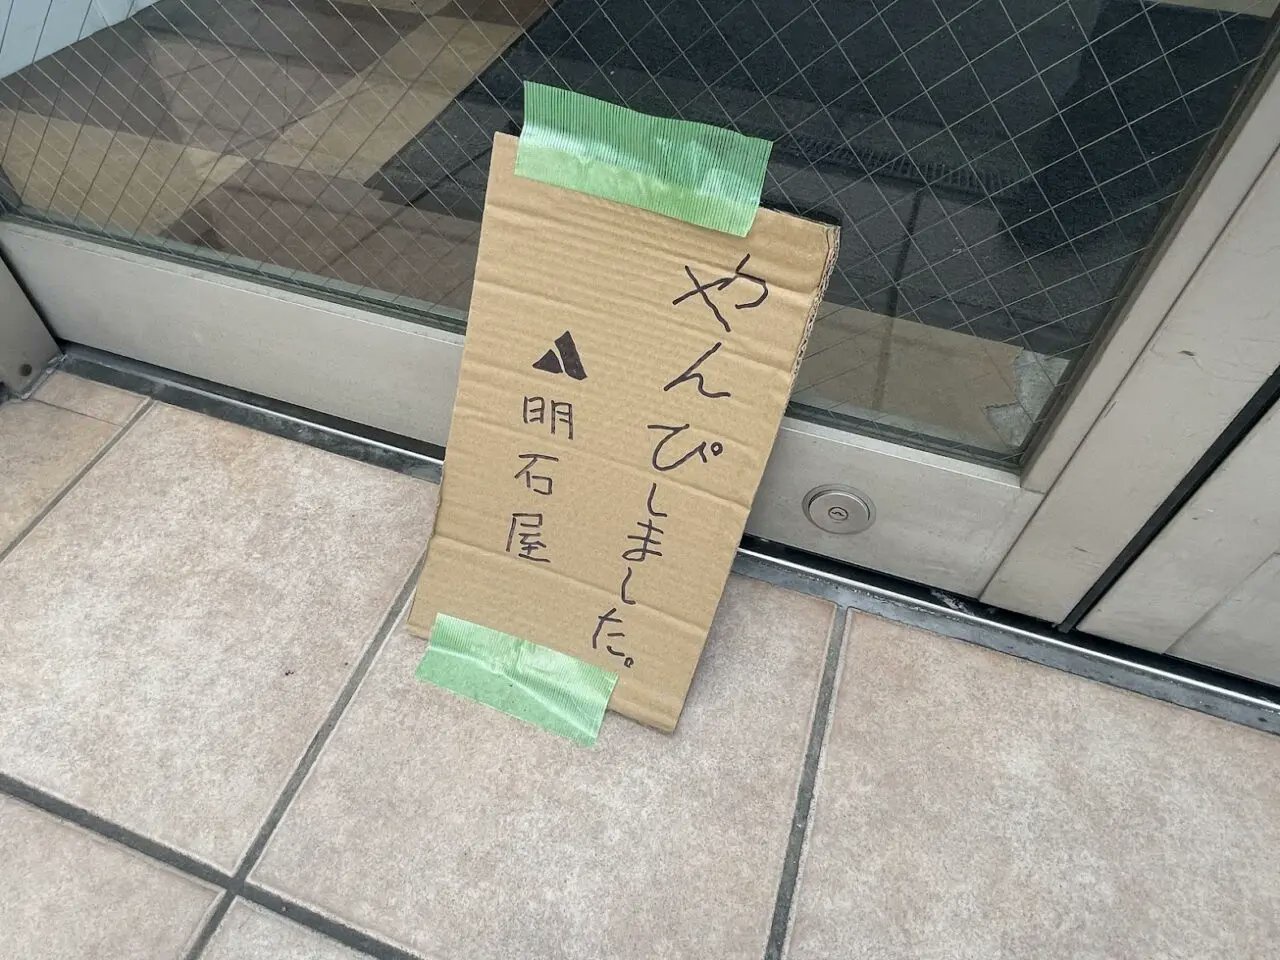 やんぴしました。
明石屋